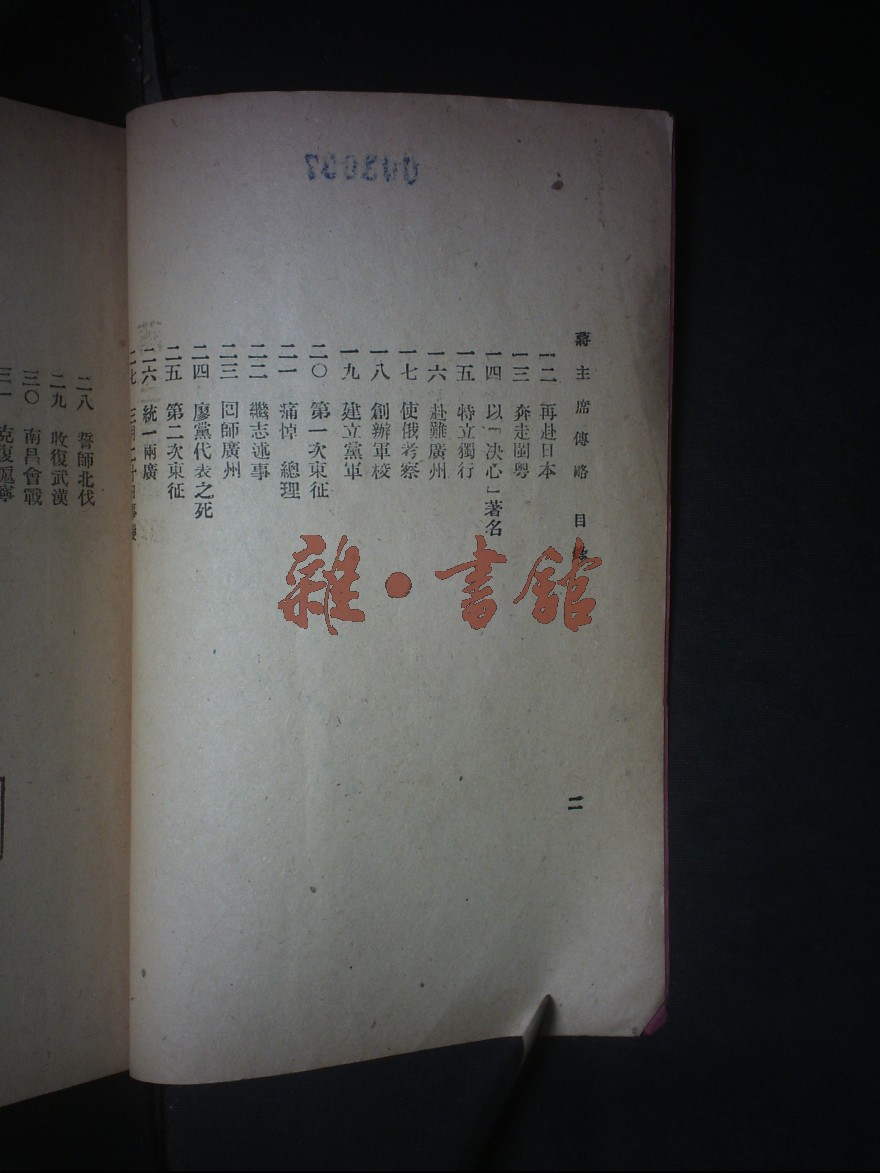 蔣主席傳略 目
二
一二 再赴日本
一三 奔走閩粤
一四 以「决心」著名
一五 特立獨行
一六 赴難廣州
一七 使俄考察
一八 創辦軍校
一九 建立黨軍
二〇 第一次東征
二一 痛悼 總理
二二 繼志述事
二三 囘師廣州
二四 廖黨代表之死
二五 第二次東征
二六 統一兩廣
二七 三月二十日
二八 誓師北伐
二九 收復武漢
三〇 南昌會戰
三一 克復
雜·書館
003037